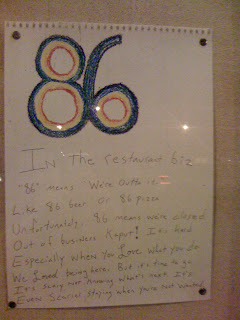 86
IN The restaurant biz
"86" means We're Outta it
Like 86 beer or 86 pizza
Unfortunately, 86 means we're closed
Out of business Kaput! It's hard
Especially when You Love what you do
We Loved being here. But it's time to go
It's scary not knowing what's next. It's
Even Scarier staying when you're not wanted